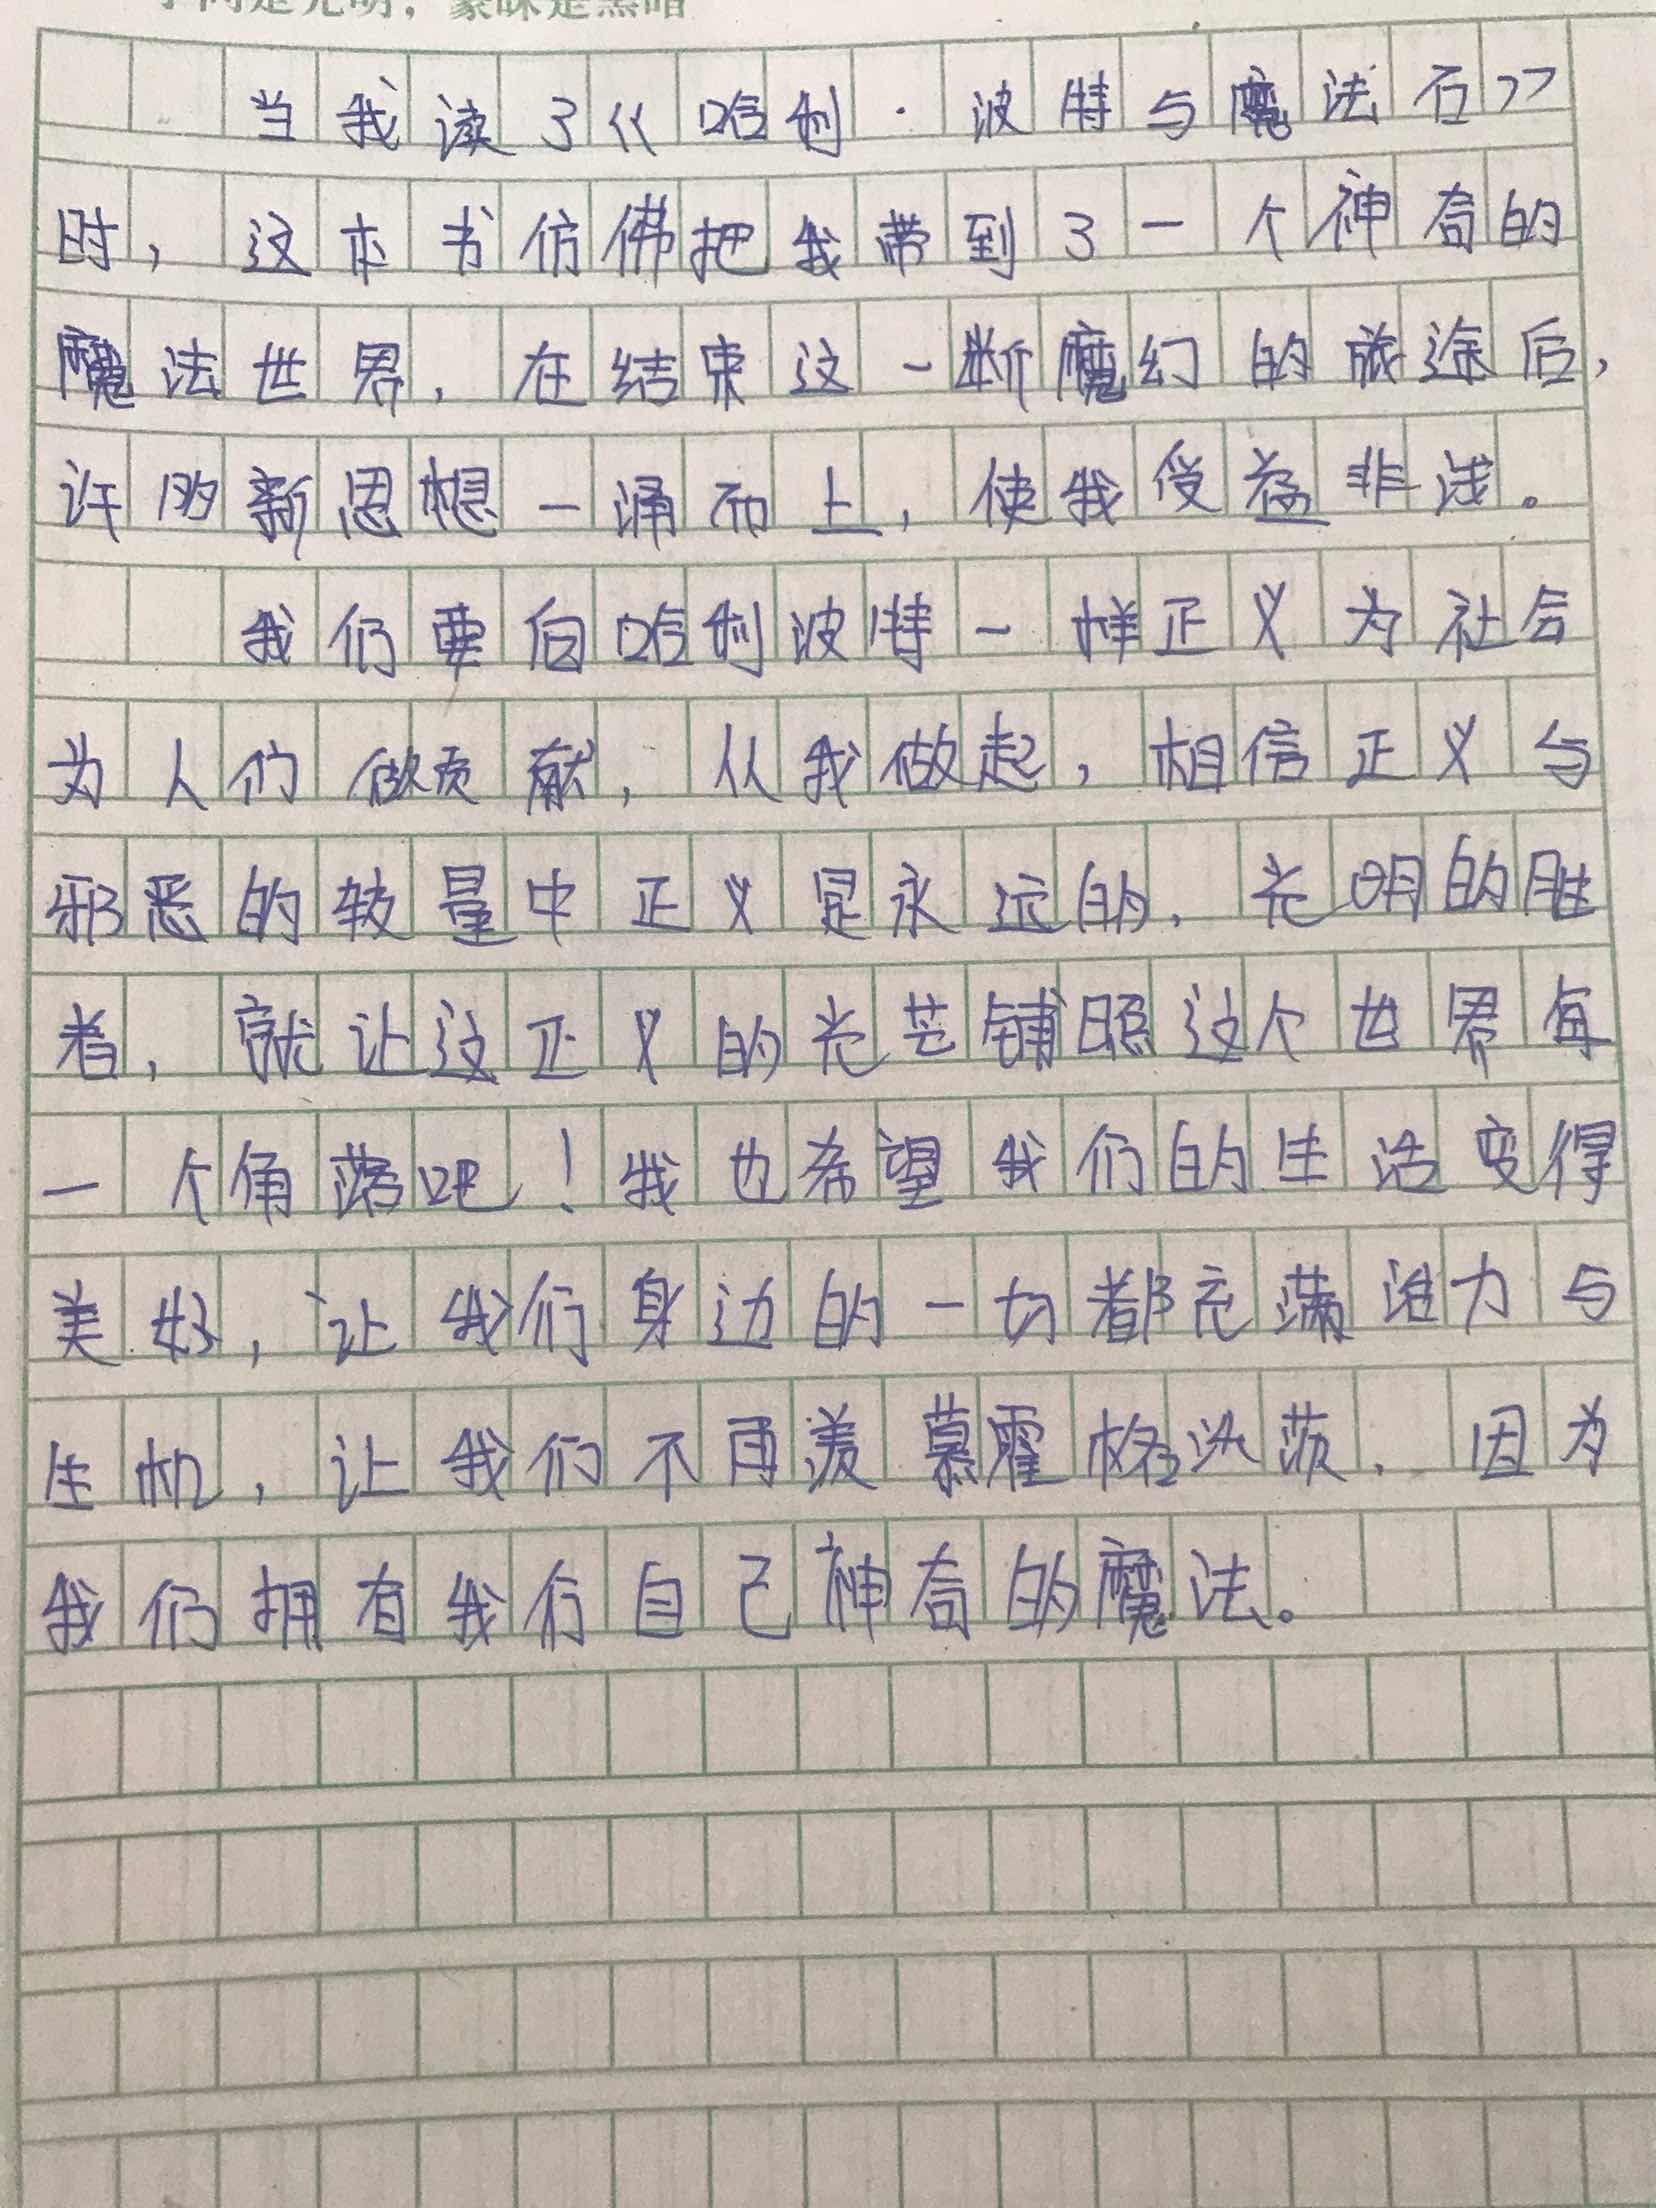 学问是光明，蒙昧是黑暗
当我读了《哈利·波特与魔法石》
时，这本书仿佛把我带到了一个神奇的
魔法世界，在结束这一断魔幻的旅途后，
许多新思想一涌而上，使我受益非浅。
我们要向哈利波特一样正义为社会
为人们做贡献，从我做起，相信正义与
邪恶的较量中正义是永远的，光明的胜
者，就让这正义的光芒铺照这个世界每
一个角落吧！我也希望我们的生活变得
美好，让我们身边的一切都充满活力与
生机，让我们不再羡慕霍格沃茨，因为
我们拥有我们自己神奇的魔法。